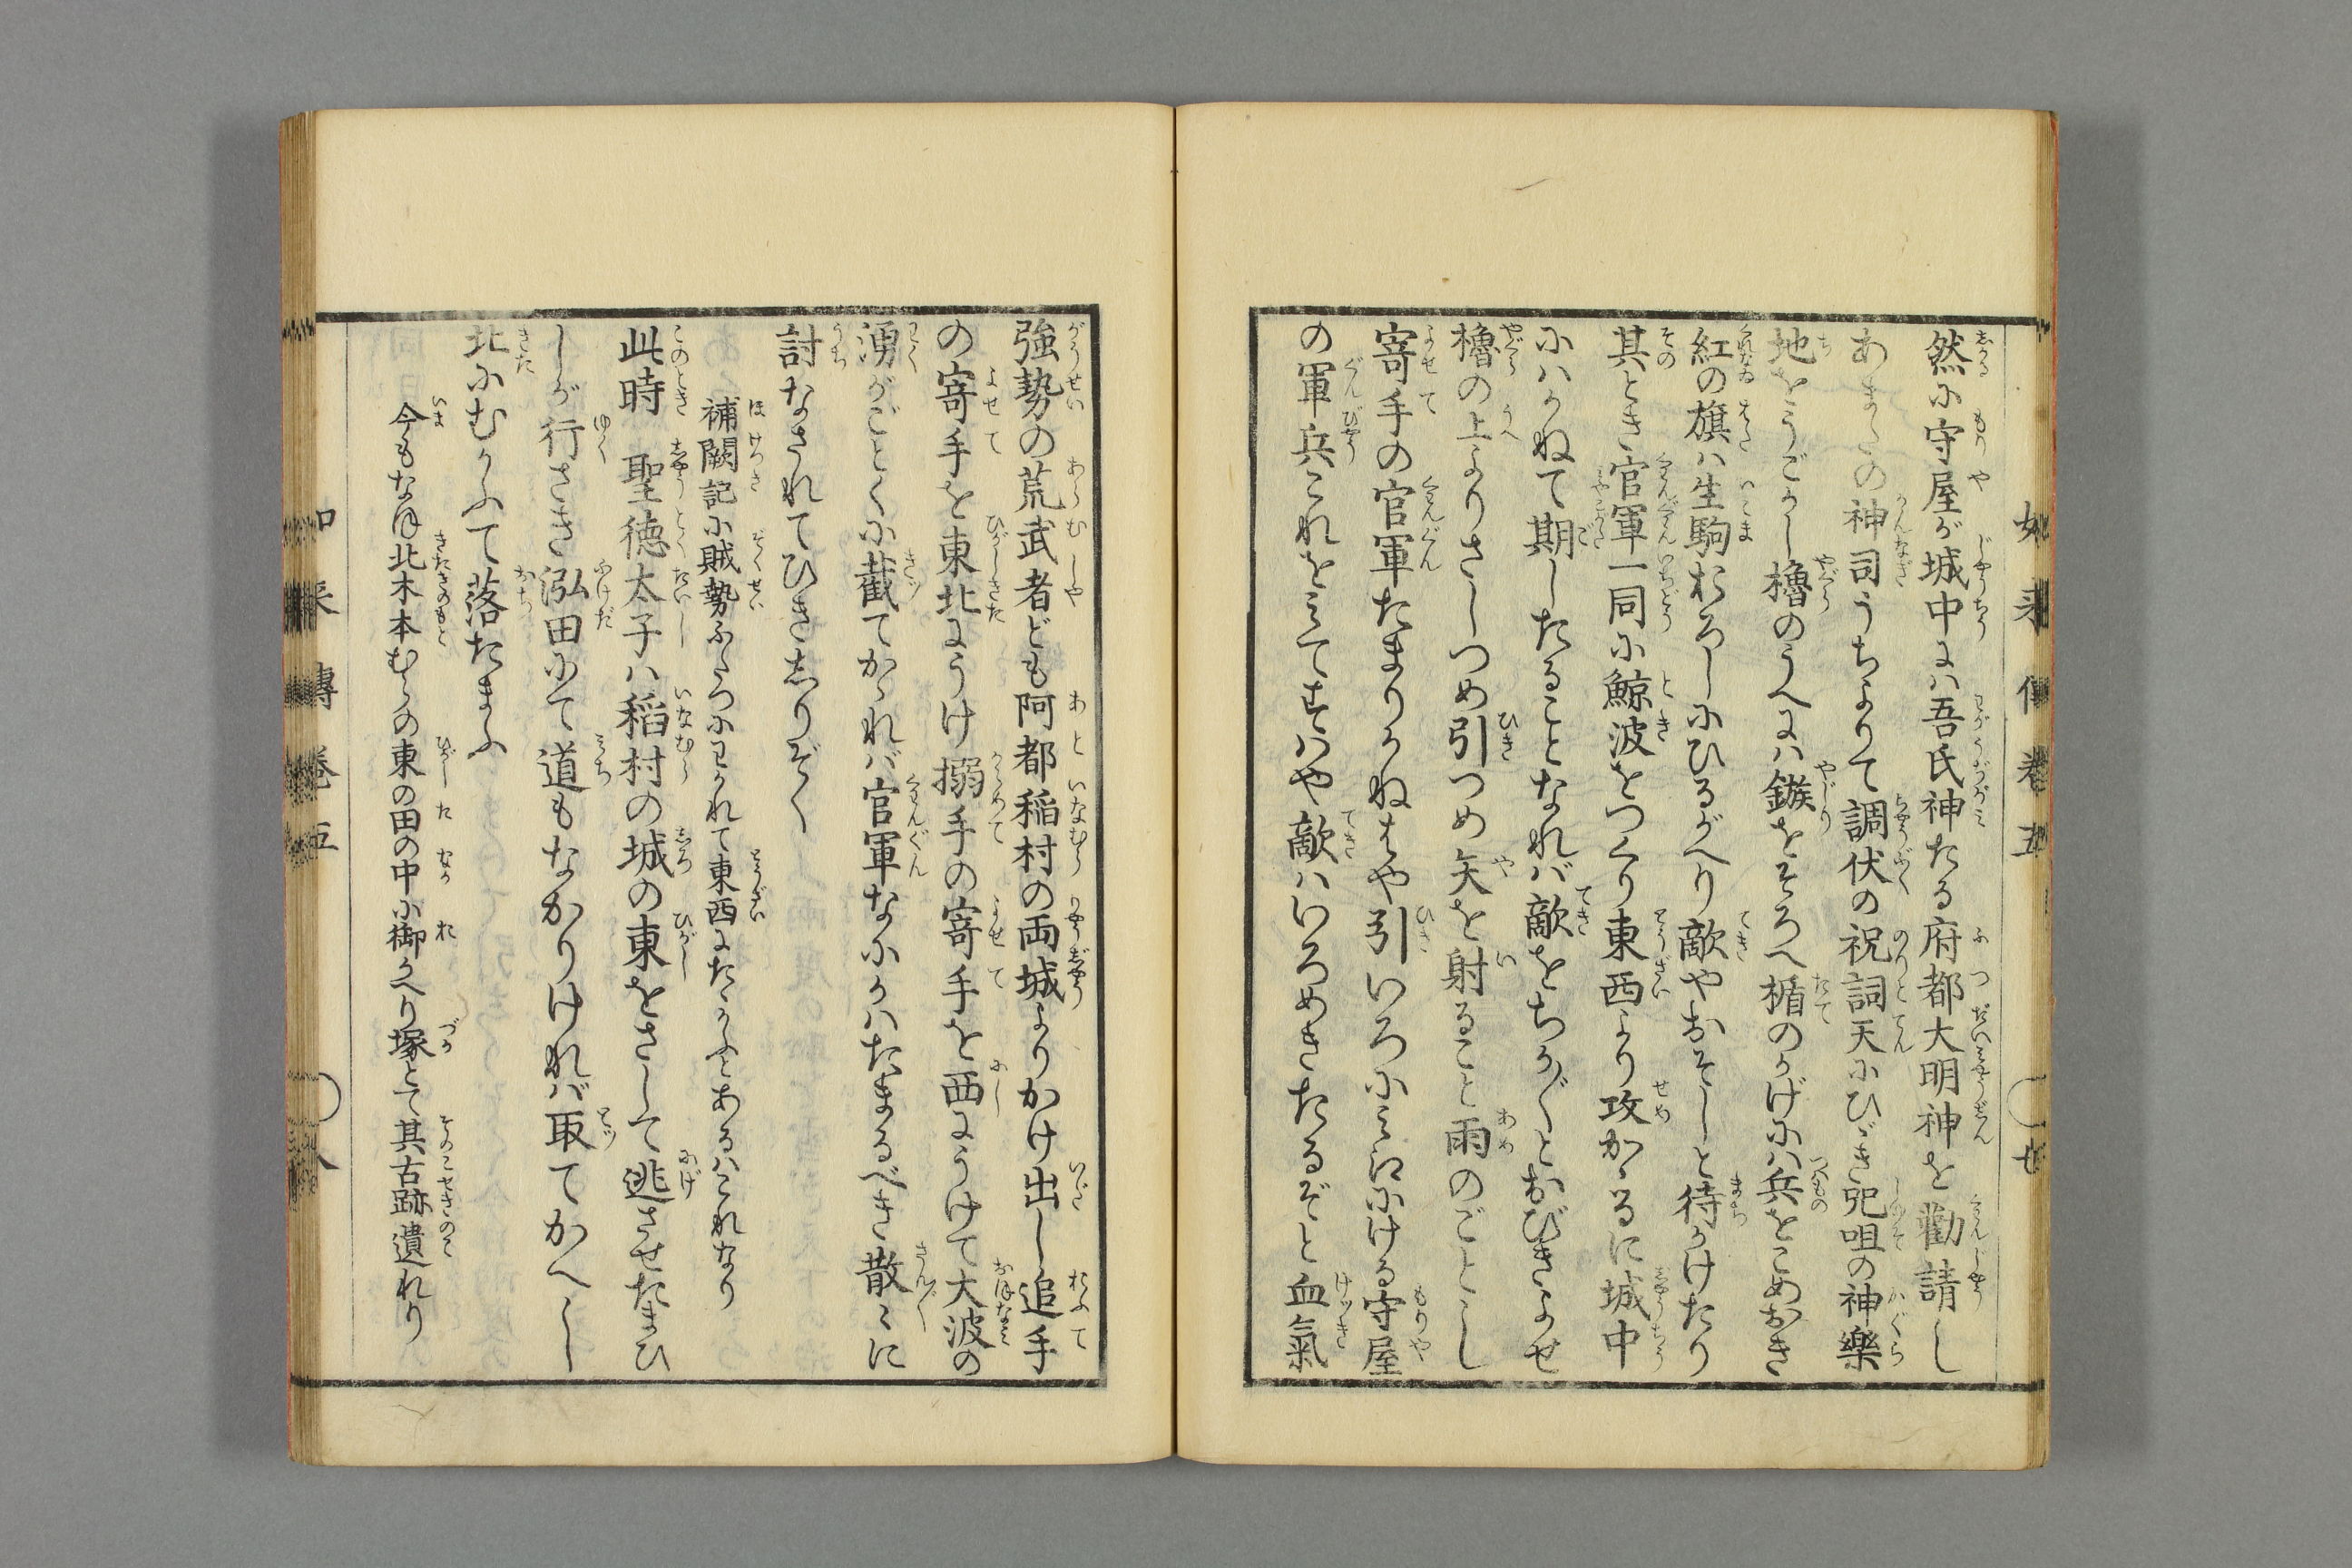 然に守屋が城中にハ吾氏神たる府都大明神を勸請し
あまたの神司うちよりて調伏の祝詞天にひゞき呪咀の神樂
地をうごかし櫓のうへにハ鏃をそろへ楯のかげにハ兵をこめおき
紅の旗ハ生駒おろしにひるがへり敵やおそしと待かけたり
其とき官軍一同に鯨波をつくり東西より攻かゝるに城中
にハかねて期したることなれバ敵をちか〴〵とおびきよせ
櫓の上よりさしつめ引つめ矢を射ること雨のごとし
寄手の官軍たまりかねはや引いろにみえにける守屋
の軍兵これをみてすハや敵ハいろめきたるぞと血氣
強勢の荒武者ども阿都稲村の両城よりかけ出し追手
の寄手を東北にうけ搦手の寄手を西にうけて大波の
湧がごとくに截てかゝれバ官軍なにかハたまるべき散〻に
討なされてひきしりぞく
補闕記に賊勢ふたつにわかれて東西にたゝかふとあるハこれなり
此時 聖徳太子ハ稲村の城の東をさして逃させたまひ
しが行さき泓田にて道もなかりけれバ取てかへし
北にむかふて落たまふ
今もなほ北木本むらの東の田の中に御かへり塚とて其古跡遺れり
如来傳巻五